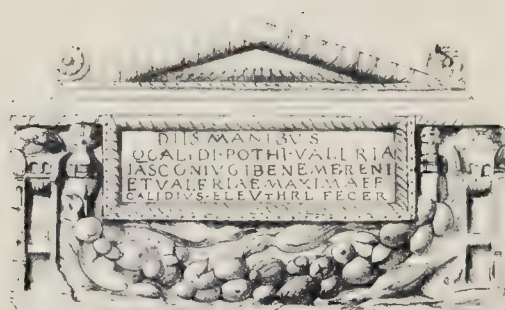 DIIS MANIBVS
QCALIDI·POTHI·VALERIA
IASCONIVGIBENEMERENI
ETVALERIAEMAXIMAEFF
CALIDIVS·ELEVTHRL FECER